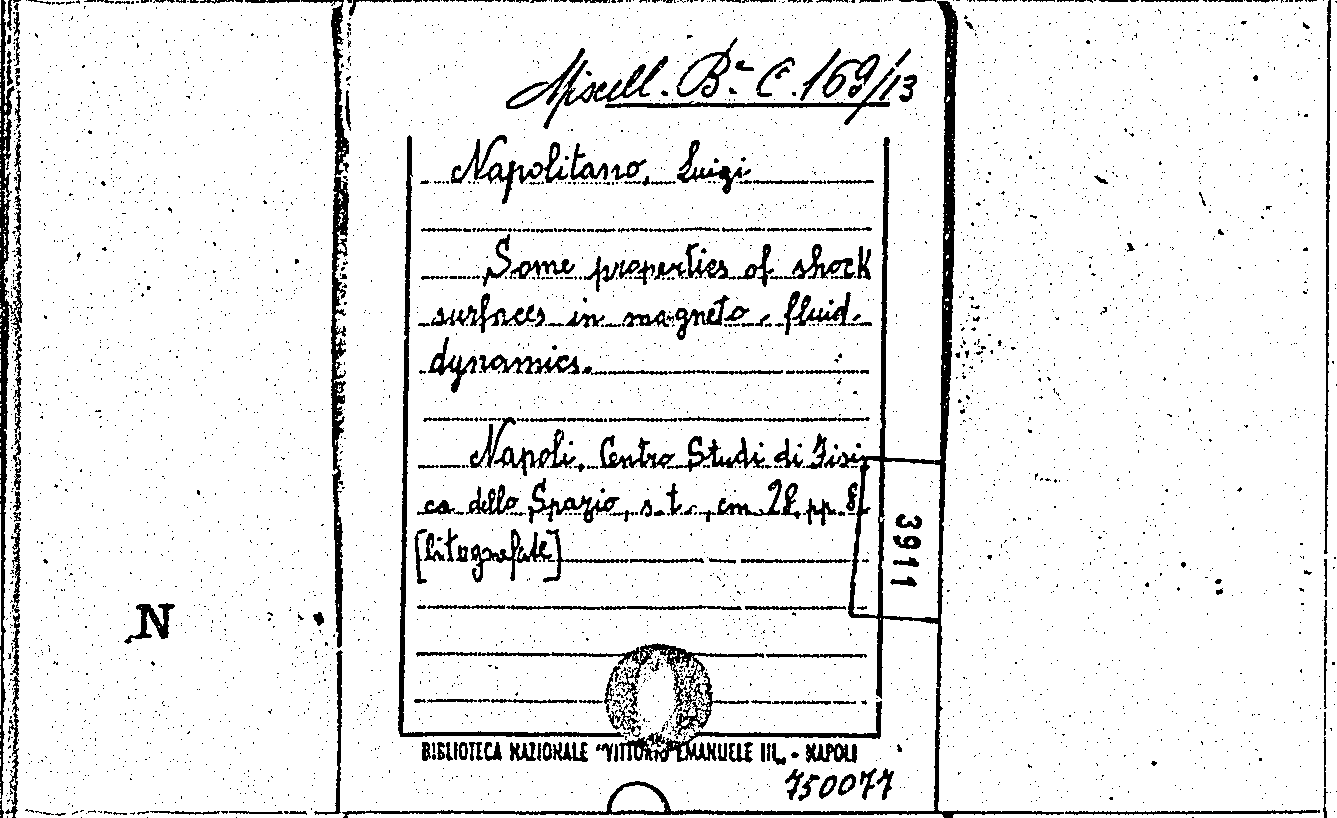 Miscell. Bª C. 169/13
Napolitano, Luigi
Some properties of shock
surfaces in magneto-fluid-
dynamics.
Napoli, Centro Studi di Fisi-
ca dello Spazio, s.t., cm. 28, pp. 8.
3911
N
BIBLIOTECA NAZIONALE "VITTORIO EMANUELE III„ - NAPOLI
750077